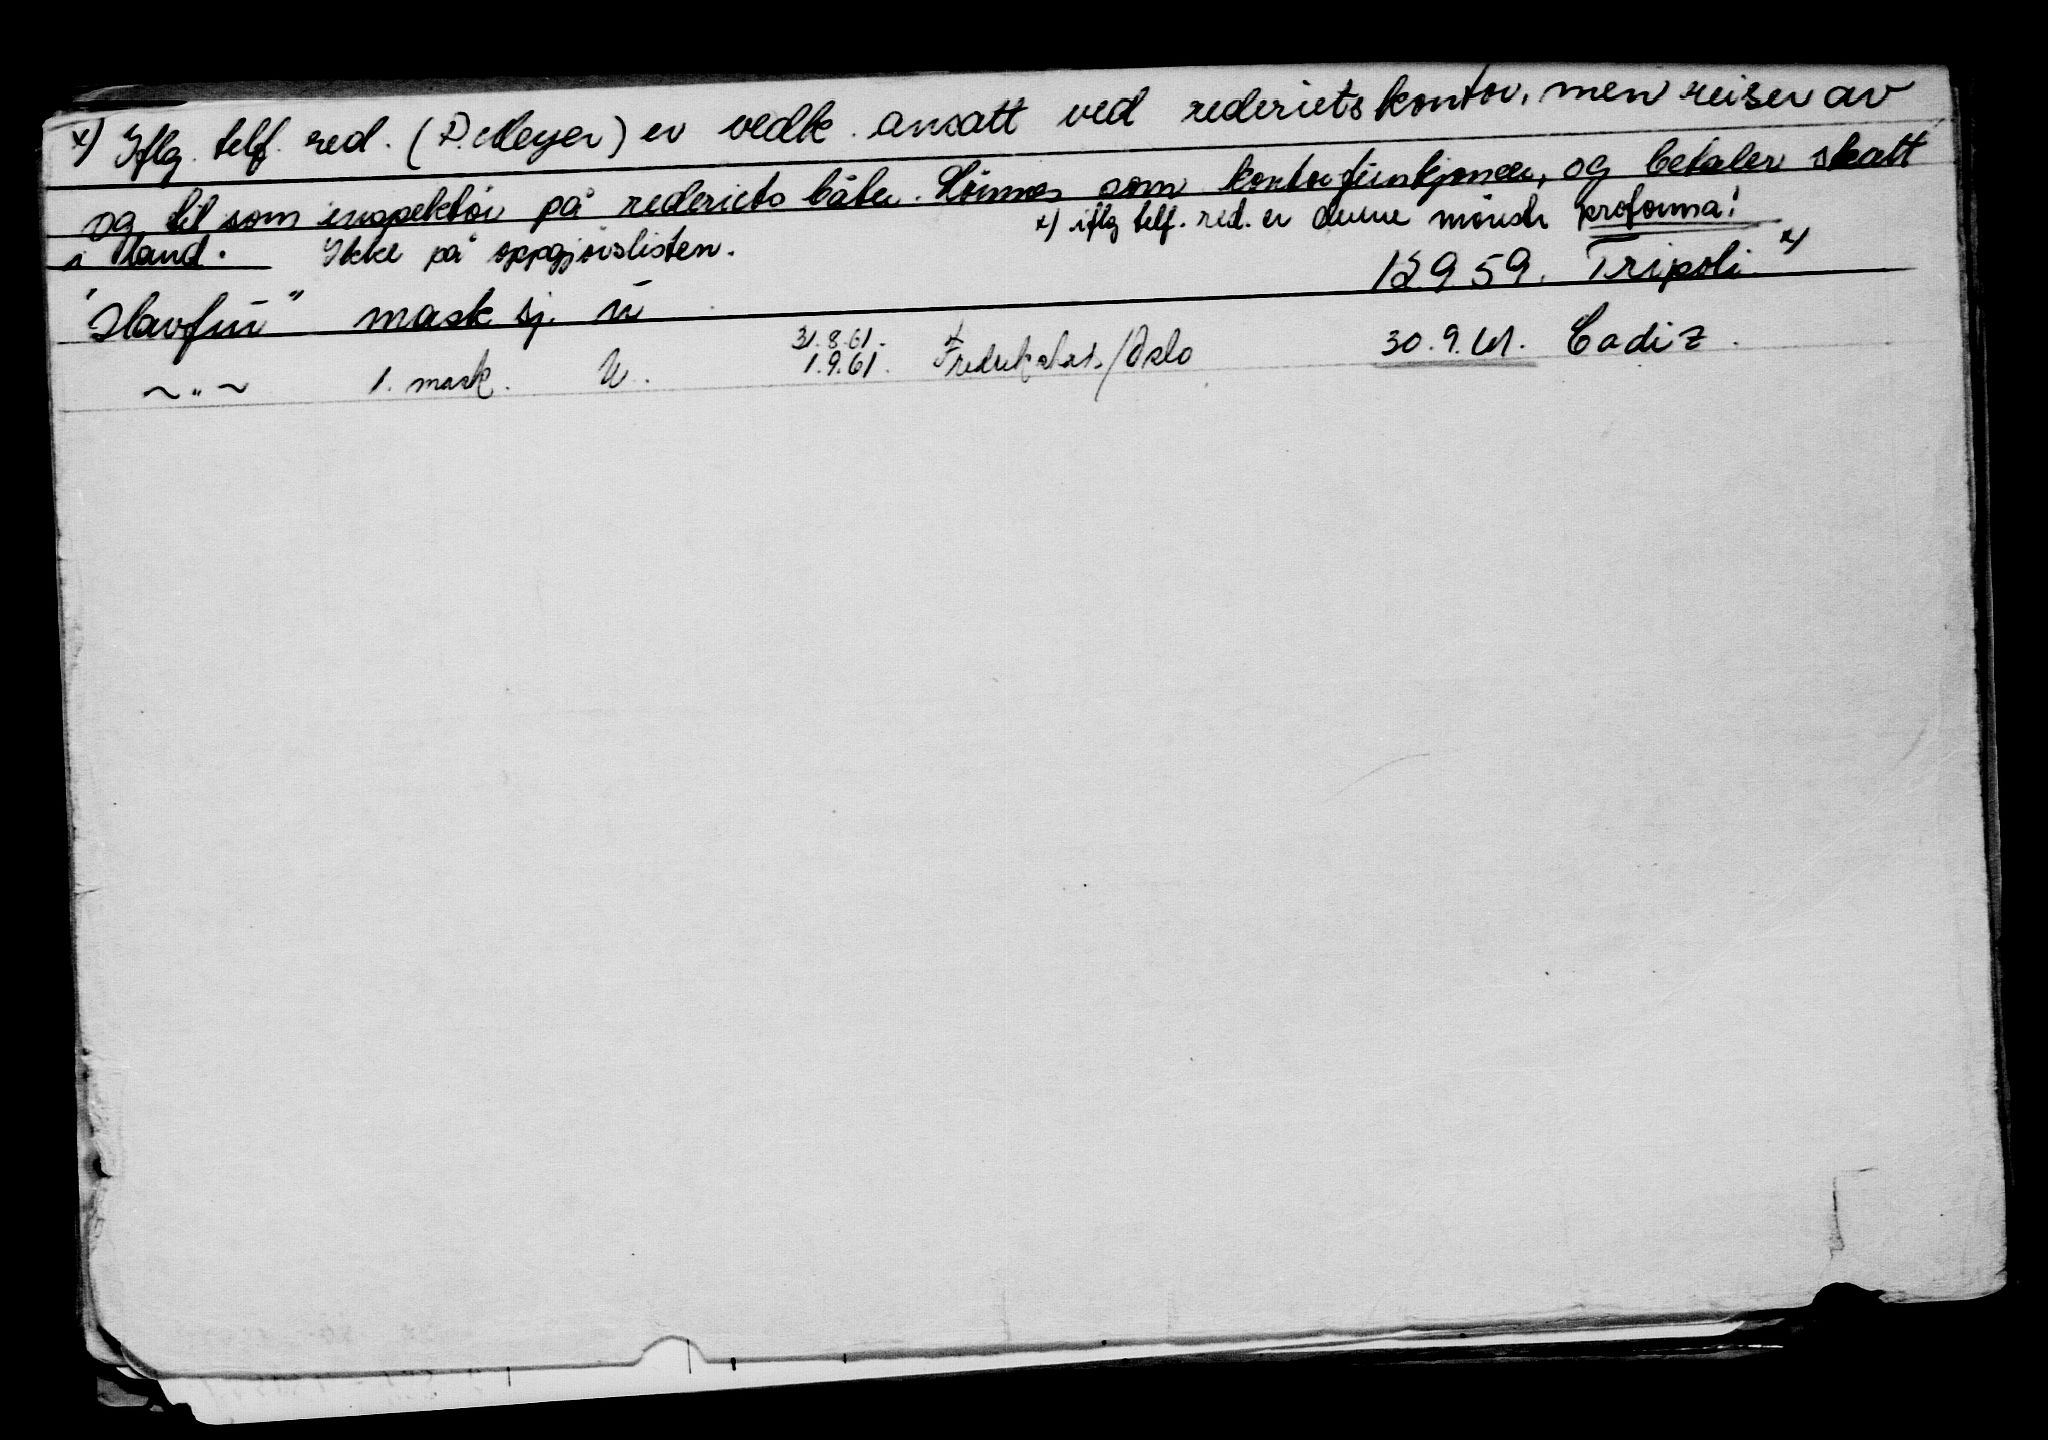 x) Iflg. telf. red. (P. Meyer) er vedk. ansatt ved rederiets kontor, men reiser av
og til som inspektør på rederiets båter. Lönnes som kontorfunksjonær, og betaler skatt
i land. Ikke på oppgjörslisten. x) iflg telf. red. er denne mönstr proforma!
"Havfru" mask sj. u 12959. Tripoli x)
~ " ~ 1. mask. U. 31.8.61. 1.9.61. Fredrikstad/Oslo 30.9.61. Cadiz.